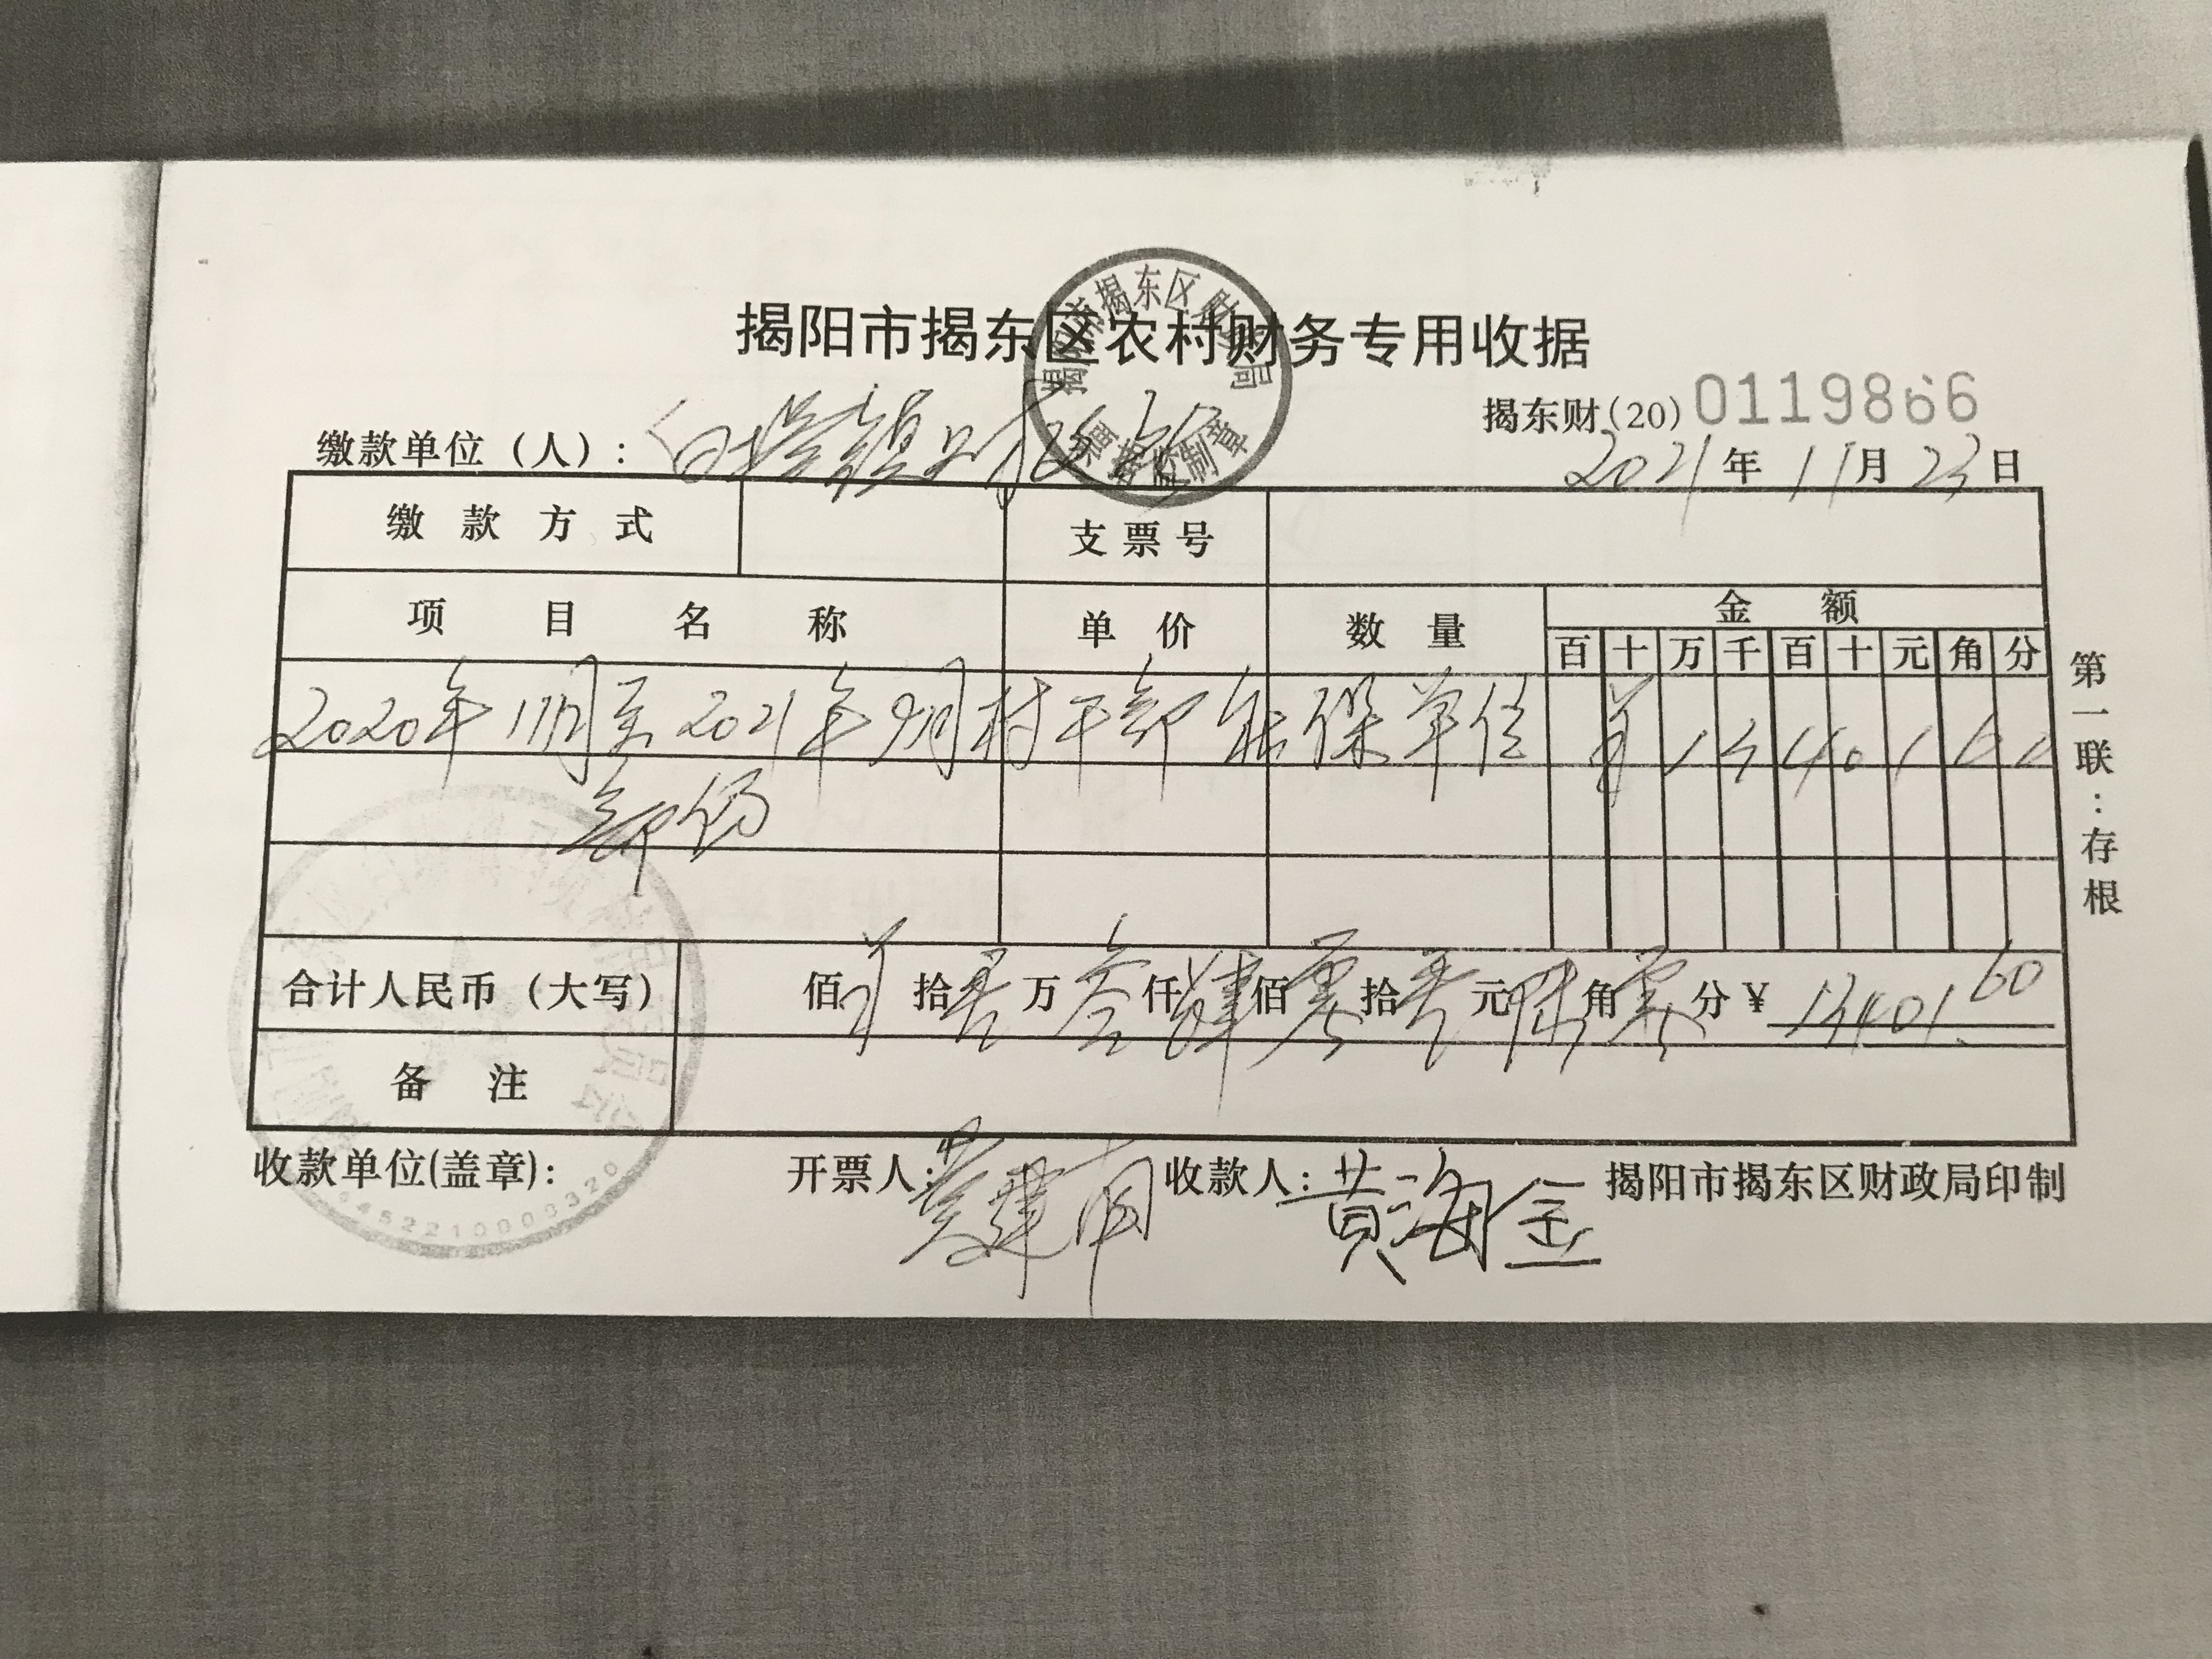 揭阳市揭东区农村财务专用收据
揭阳市揭东区财政局
票据监制章
揭东财(20) 0119866
缴款单位（人）: 白塔镇财政所
2021年11月23日
缴款方式 支票号
项目名称 单价 数量 金额
百 十 万 千 百 十 元 角 分
2020年11月至2021年9月村干部社保单位 ¥ 1 3 4 0 1 6 0
部份
合计人民币（大写） 佰 ¥ 拾 壹 万 叁 仟 肆 佰 零 拾 壹 元 陆 角 零 分 ¥ 13401.60
备注
收款单位(盖章): 开票人: 收款人: 黄海金 揭阳市揭东区财政局印制
第一联:存根